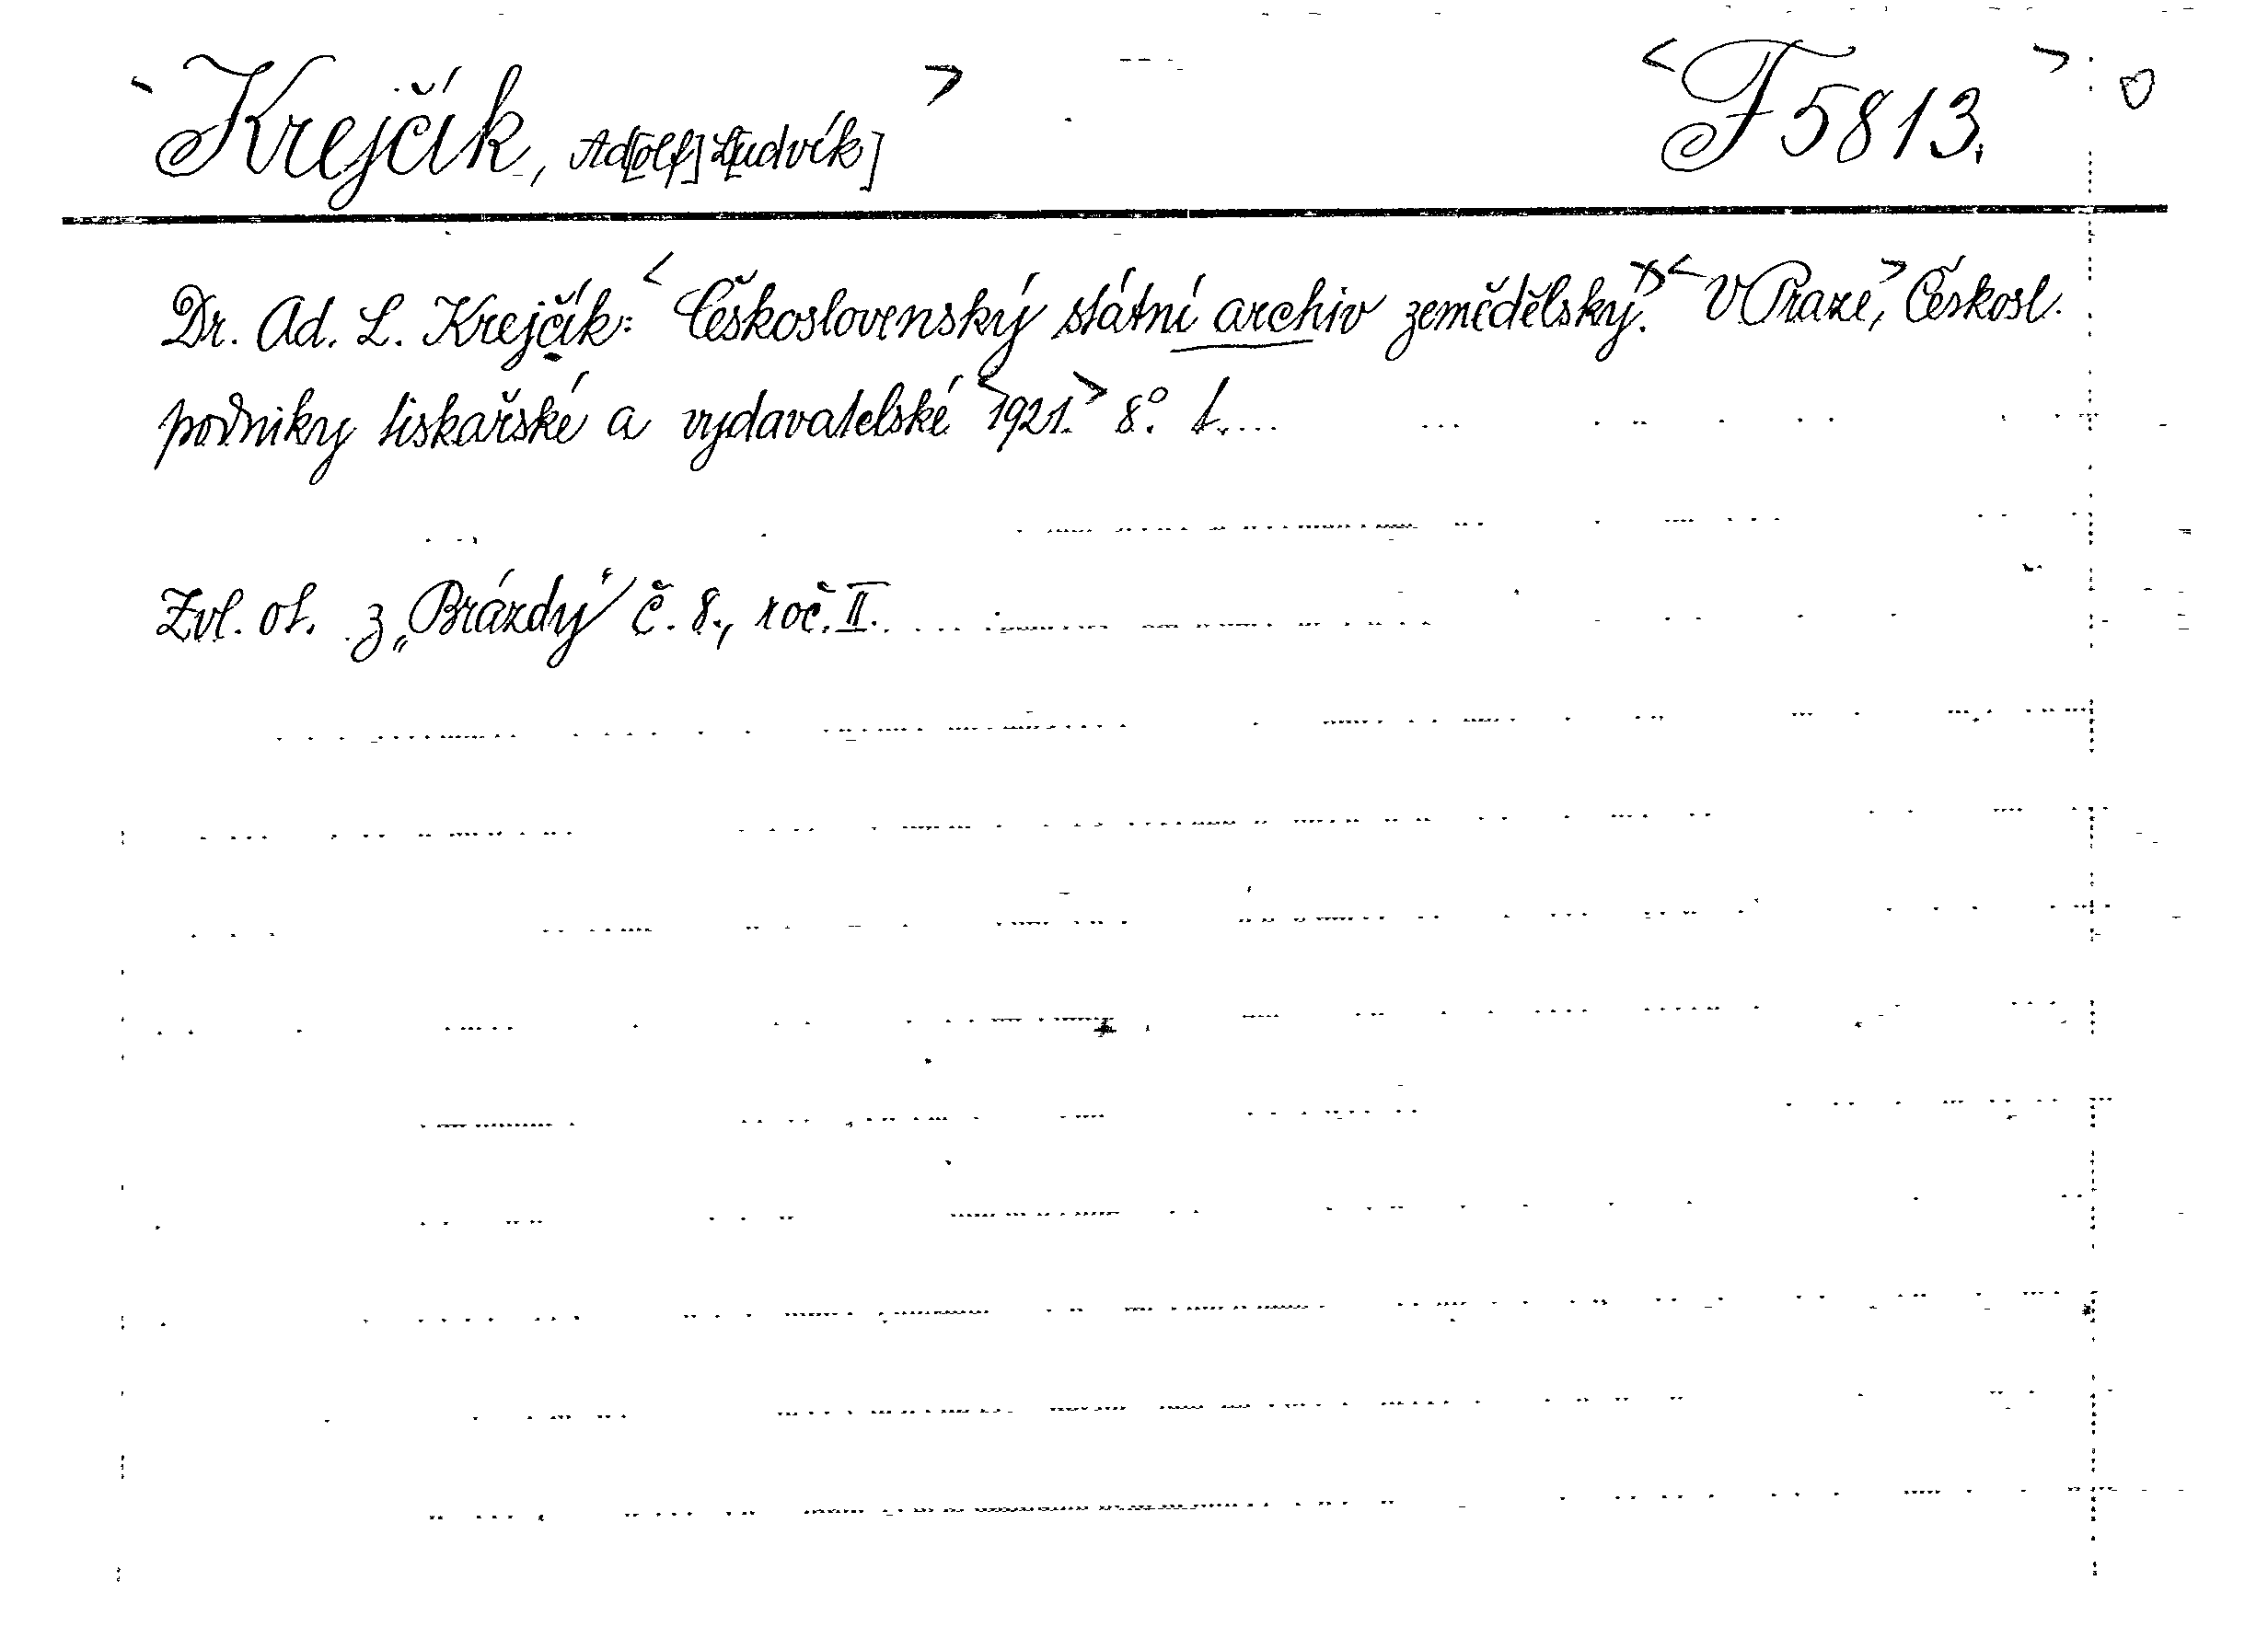 Krejčík, Ad[olf] L[udvík] F 5813.
Dr. Ad. L. Krejčík: Československý státní archiv zemědělský. V Praze, Českosl.
podniky tiskařské a vydavatelské 1921. 8°.
Zvl. ot. z „Brázdy“ č. 8., roč. II.